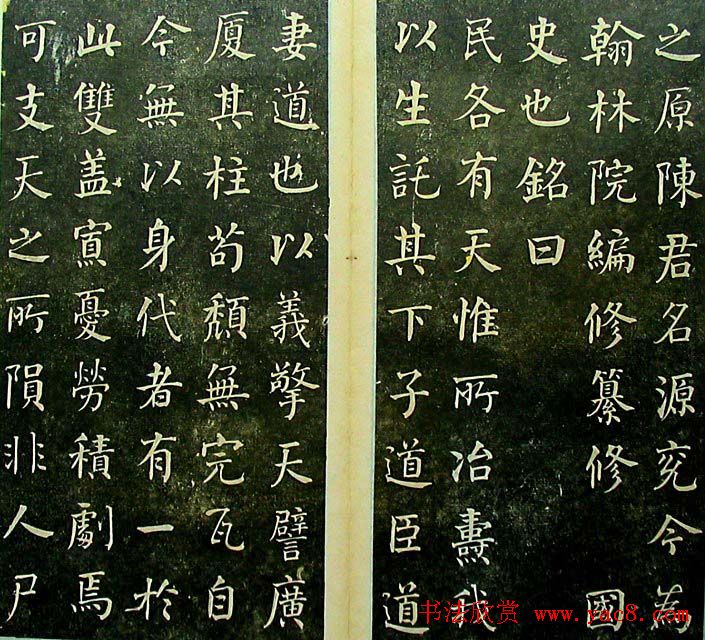 之原陳君名源兖今為
翰林院編修纂修 國
史也銘曰
民各有天惟所冶燾我
以生託其下子道臣道
妻道也以義擎天譬廣
厦其柱苟頹無完瓦自
今無以身代者有一於
此雙盖寘憂勞積劇焉
可支天之所隕非人尸
书法欣赏 www.yac8.com